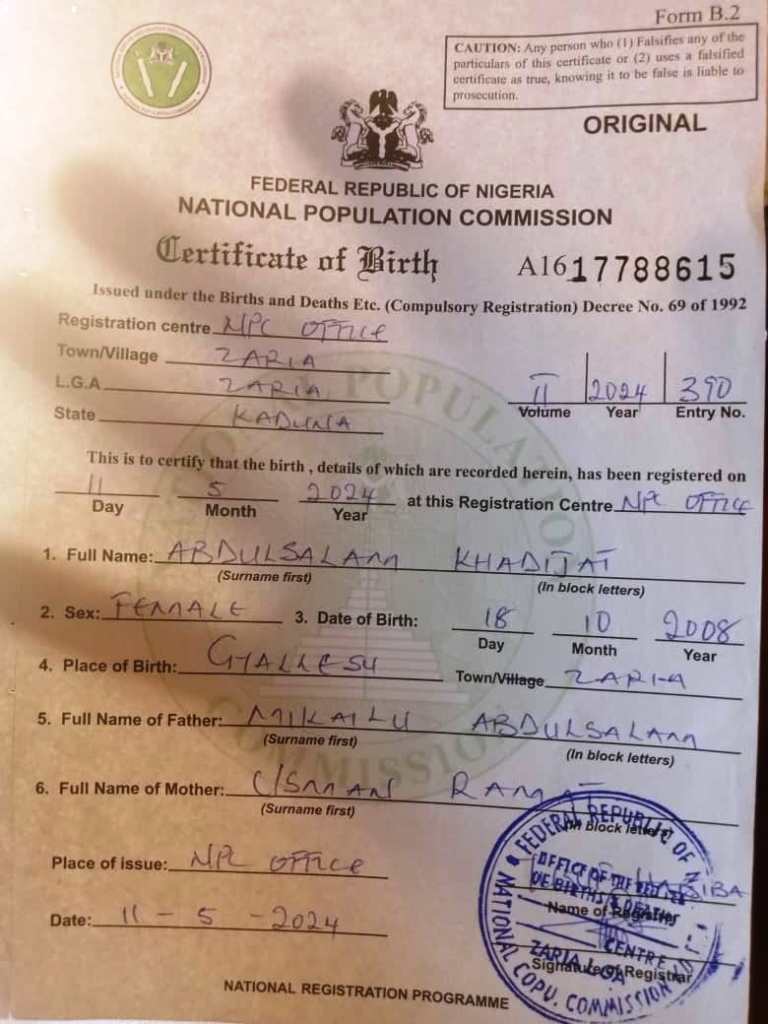 Form B.2
CAUTION: Any person who (1) Falsifies any of the
particulars of this certificate or (2) uses a falsified
certificate as true, knowing it to be false is liable to
prosecution.
ORIGINAL
FEDERAL REPUBLIC OF NIGERIA
NATIONAL POPULATION COMMISSION
Certificate of Birth A1617788615
Issued under the Births and Deaths Etc. (Compulsory Registration) Decree No. 69 of 1992
Registration centre NPC OFFICE
Town/Village ZARIA
L.G.A ZARIA
State KADUNA
II 2024 390
Volume Year Entry No.
This is to certify that the birth , details of which are recorded herein, has been registered on
11 5 2024 at this Registration Centre NPC OFFICE
Day Month Year
1. Full Name: ABDULSALAM KHADIJAT
(Surname first) (In block letters)
2. Sex: FEMALE 3. Date of Birth: 18 10 2008
Day Month Year
4. Place of Birth: GYALLESU Town/Village ZARIA
5. Full Name of Father: MIKAILU ABDULSALAM
(Surname first) (In block letters)
6. Full Name of Mother: USMAN
(Surname first) In block letters)
Place of issue: NPC OFFICE
Name of Registrar
Date: 11 - 5 - 2024
Signature of Registrar
FEDERAL REPUBLIC OF
OFFICE OF THE
OF BIRTHS & DEATHS
CENTRE
ZARIA LGA
NATIONAL COPU. COMMISSION
NATIONAL REGISTRATION PROGRAMME
NATIONAL POPULATION COMMISSION